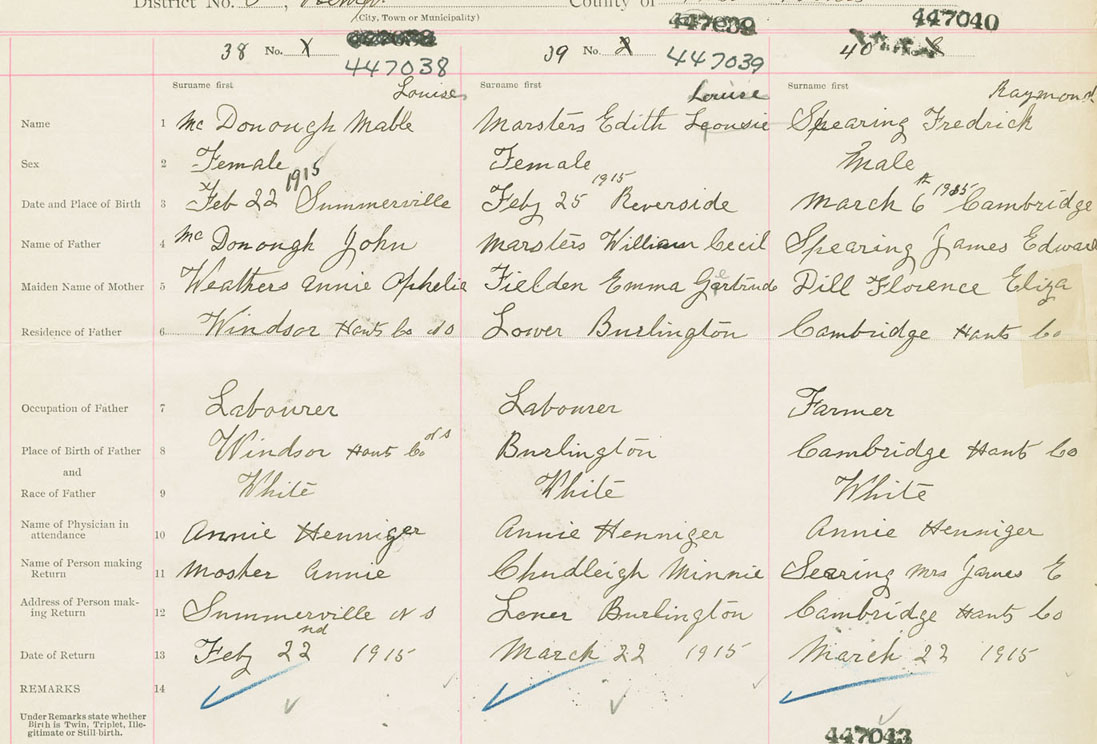 District No. County of
(City, Town or Municipality)
447039 447040
38 No. X 447038 39 No. X 447039 40
Surname first Louise Surname first Louise Surname first Raymond
Name 1 Mc Donough Mable Marsters Edith Leousie Spearing Fredrick
Sex 2 Female Female Male
Date and Place of Birth 3 Feb 22 1915 Summerville Feby 25 1915 Reverside March 6th Cambridge
Name of Father 4 Mc Donough John Marsters William Cecil Spearing James Edward
Maiden Name of Mother 5 Weathers Annie Ophelia Fielden Emma Gertrude Dill Florence Eliza
Residence of Father 6 Windsor Hants Co N S Lower Burlington Cambridge Hants Co
Occupation of Father 7 Labourer Labourer Farmer
Place of Birth of Father 8 Windsor Hants Co N S Burlington Cambridge Hants Co
and
Race of Father 9 White White White
Name of Physician in attendance 10 Annie Henniger Annie Henniger Annie Henniger
Name of Person making Return 11 Mosher Annie Chudleigh Minnie Searing Mrs James E
Address of Person making Return 12 Summerville N S Lower Burlington Cambridge Hants Co
Date of Return 13 Feby 22nd 1915 March 22 1915 March 22 1915
REMARKS 14
Under Remarks state whether
Birth is Twin, Triplet, Ille-
gitimate or Still birth.
447043